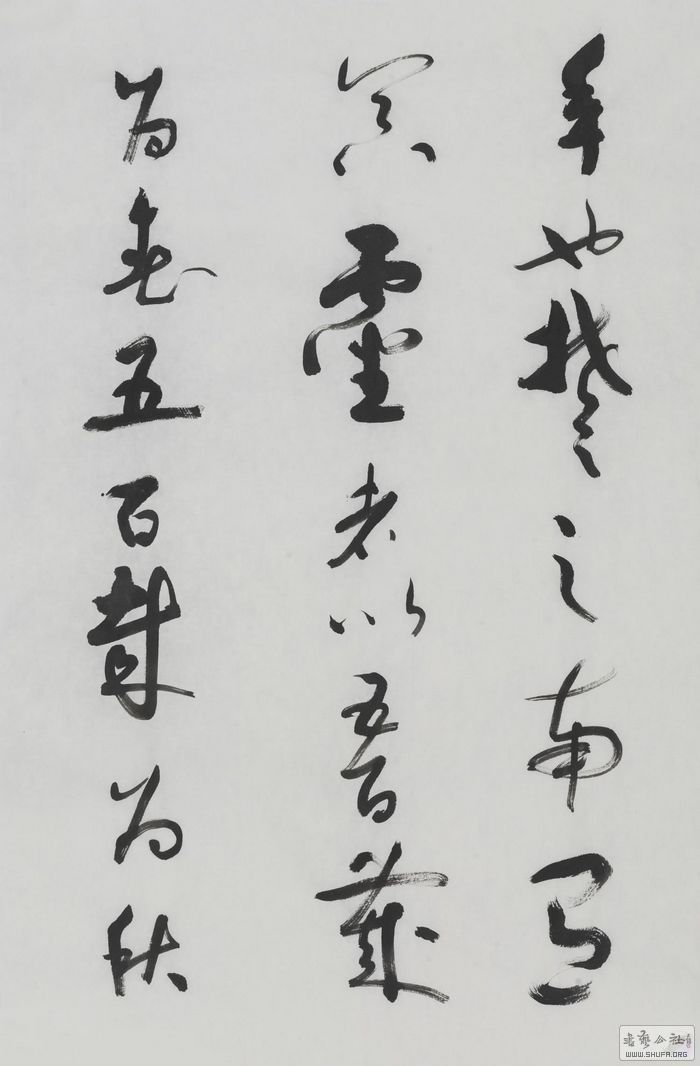 年也楚之南有
冥靈者以五百歲
为春五百歲为秋
書藝公社
WWW.SHUFA.ORG